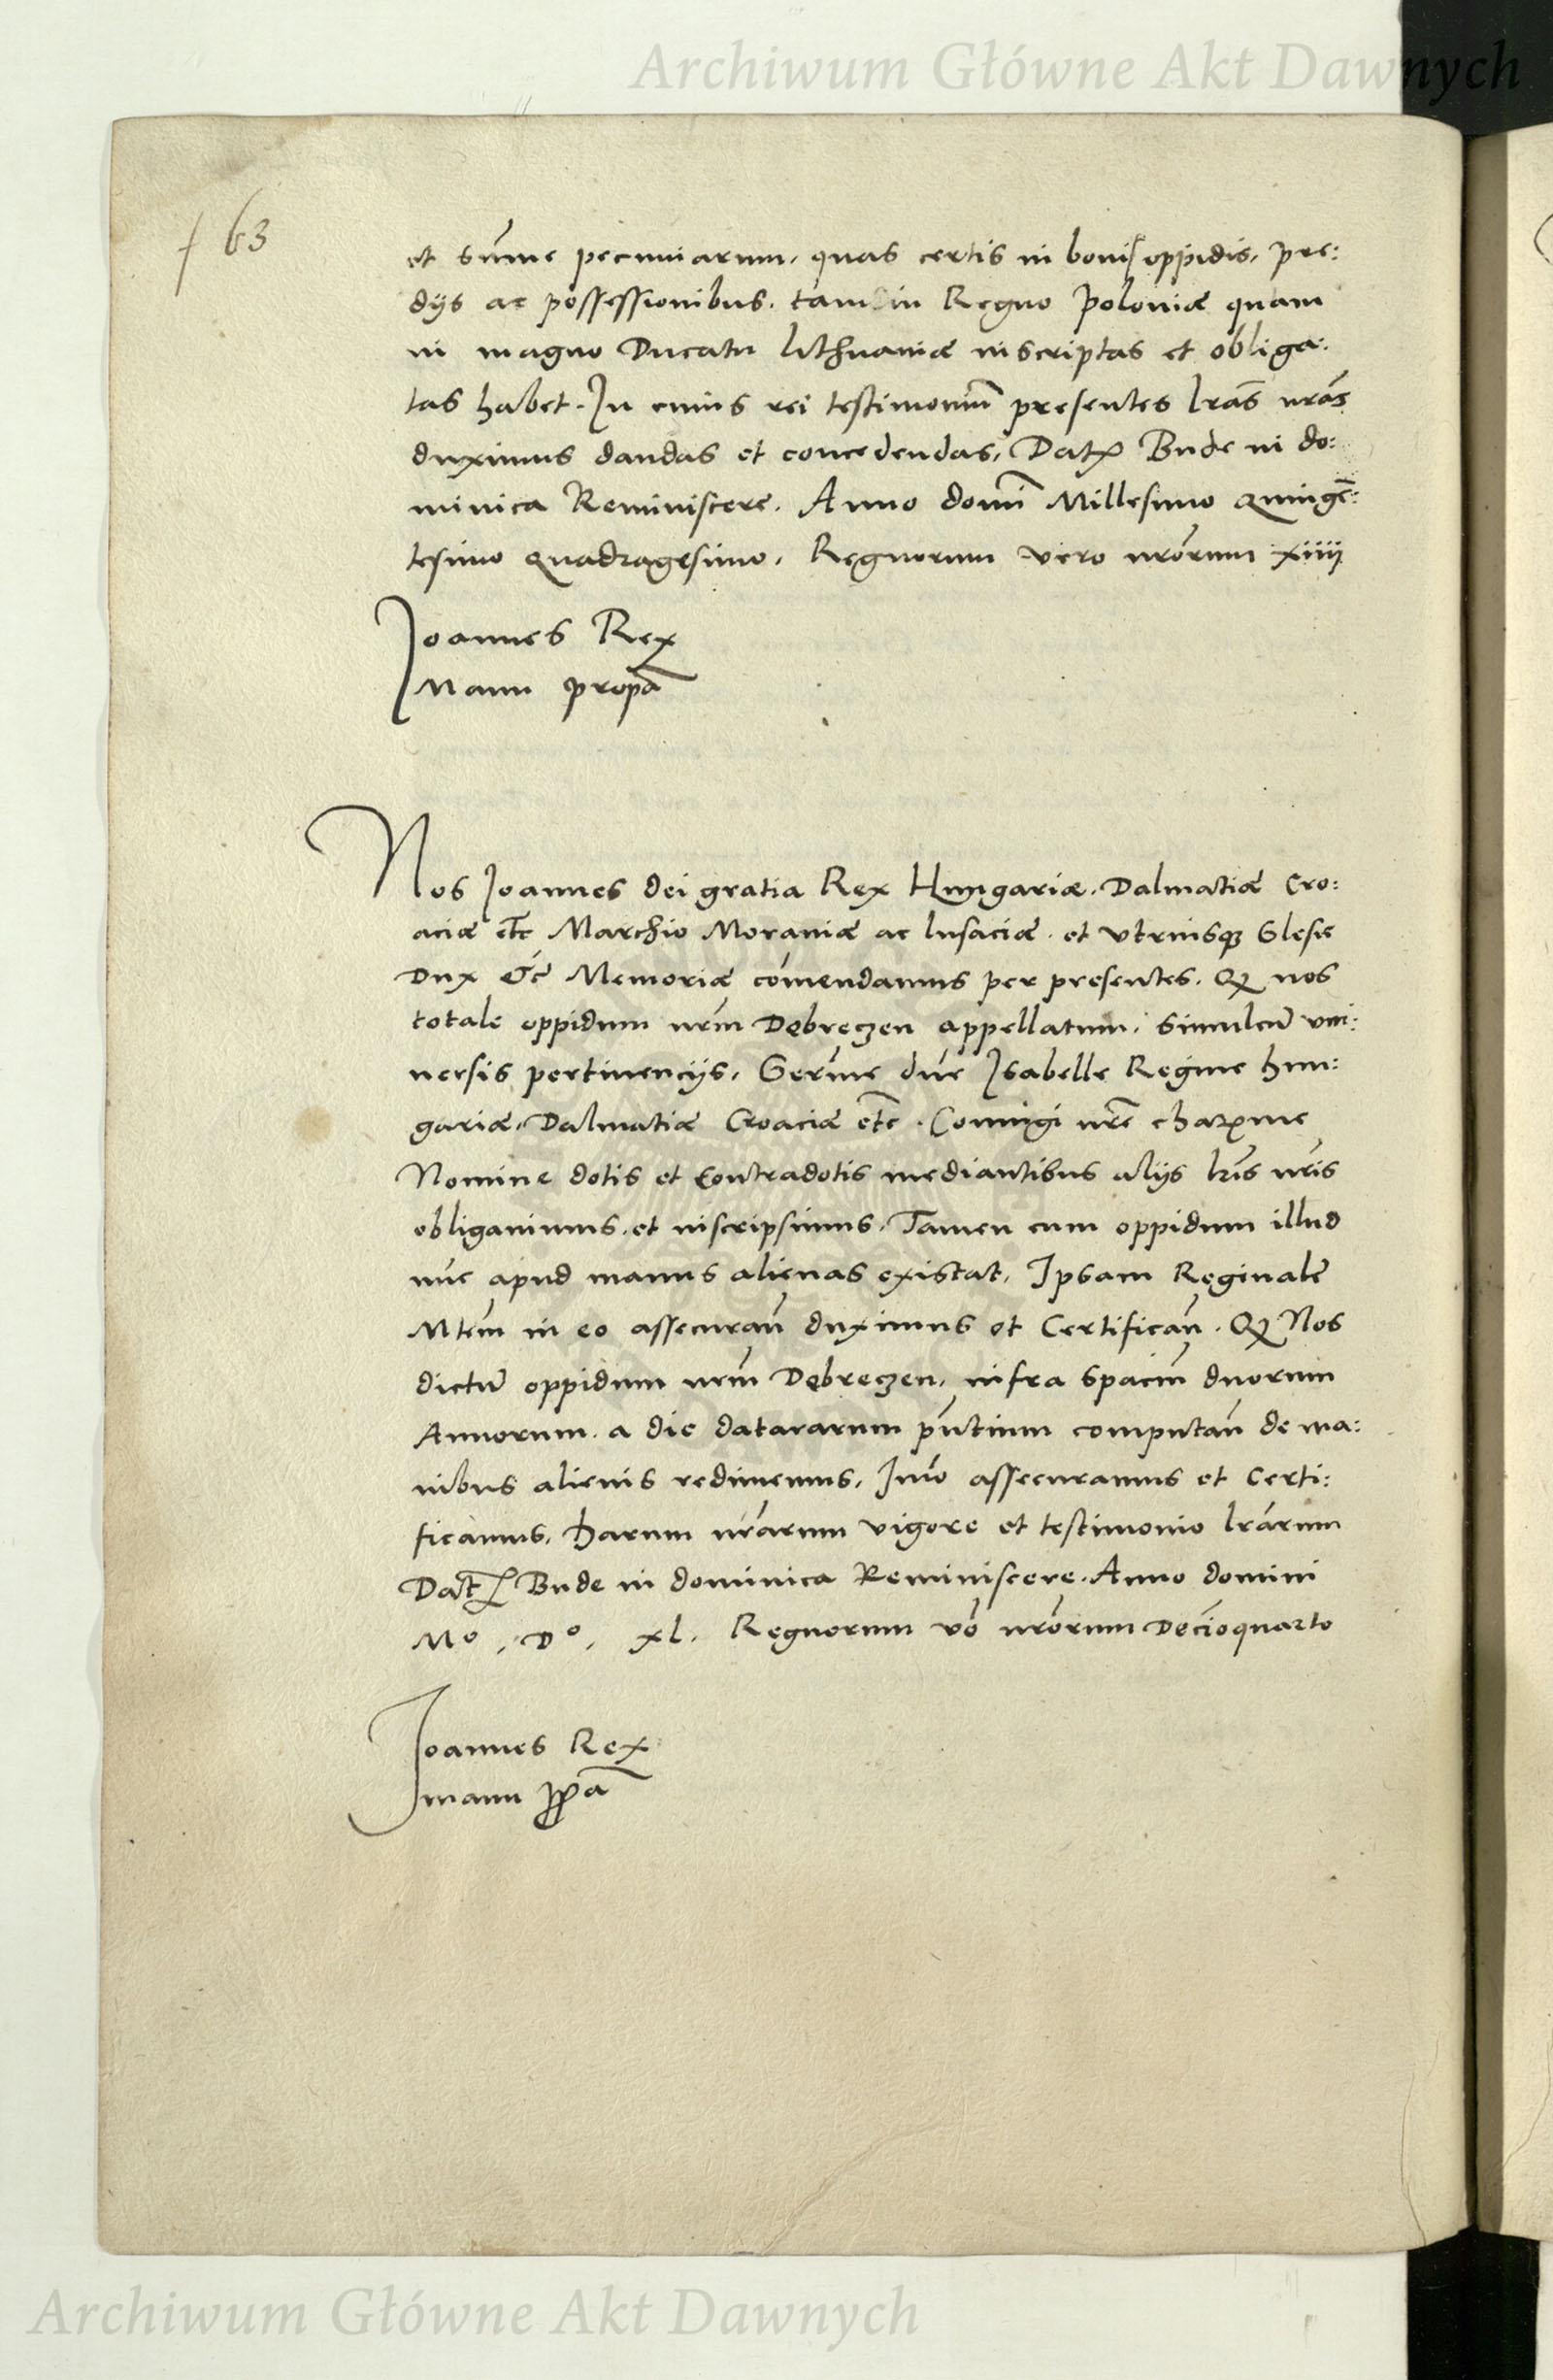 Archiwum Główne Akt Dawnych
f 63
et sum̄e pecuniarum, quas certis in bonis oppidis, pre:
dijs ac possessionibus, tam in Regno Poloniæ quam
in magno Ducatu Lithuaniæ inscriptas et obliga:
tas habet. In cuius rei testimoniū presentes lr̄as nr̄as
duximus dandas et concedendas, Datꝝ Bude in do:
minica Reminiscere. Anno domī Millesimo Quingē:
tesimo Quadragesimo, Regnorum vero nr̄orum xiiij
Joannes Rex
Manu propā
Nos Joannes dei gratia Rex Hungariæ, Dalmatiæ Cro:
aciæ etc̄ Marchio Morauiæ ac lusaciæ et vtriusqꝫ Slesie
Dux &c̄ Memoriæ com̄endamus per presentes. Qꝫ nos
totale oppidum nr̄m Debreczen appellatum, simulcū vni:
uersis pertinencijs, Serm̄e dn̄e Isabelle Regine hun:
gariæ, Dalmatiæ Croaciæ etc̄. Coniugi nr̄e charꝫme
Nomine dotis et Contradotis mediantibus alijs lr̄is nr̄is
obligauimus, et inscripsimus, Tamen cum oppidum illud
nūc apud manus alienas existat, Ipsam Reginalē
Mtem̄ in eo assecuran̄ duximus et Certifican̄. Qꝫ Nos
dictū oppidum nr̄m Debreczen, infra spaciū duorum
Annorum, a die datararum pn̄tium computan̄ de ma:
nibus alienis redimemus, Imō assecuramus et Certi:
ficamus, Harum nr̄arum vigore et testimonio lr̄arum
Datꝝ Bude in dominica Reminiscere. Anno domini
Mº, Dº, xl. Regnorum vō nr̄orum Deciōquarto
Joannes Rex
manu ꝓpā
Archiwum Główne Akt Dawnych